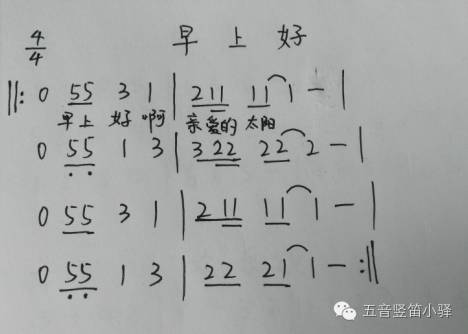 4/4 早上好
‖: 0 55 3 1 | 211 11 1 - |
早上 好 啊 亲爱的 太阳
0 55 1 3 | 322 22 2 - |
0 55 3 1 | 211 11 1 - |
0 55 1 3 | 22 21 1 - :‖
五音竖笛小驿